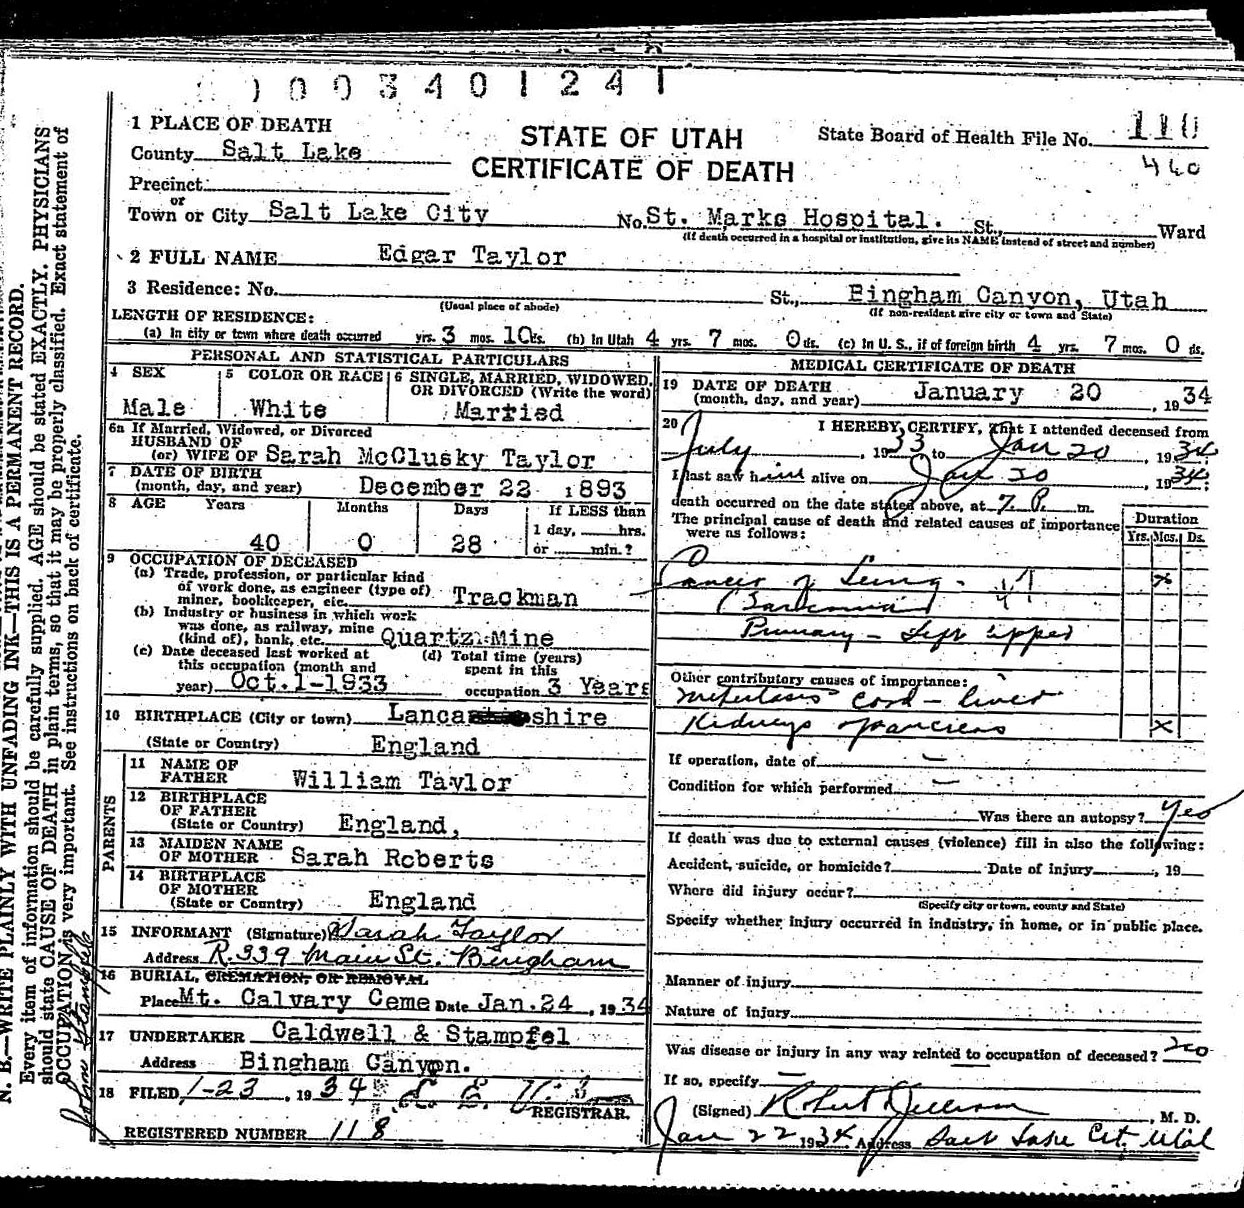 003401241
1 PLACE OF DEATH
STATE OF UTAH
CERTIFICATE OF DEATH
State Board of Health File No. 110
460
County Salt Lake
Precinct
or
Town or City Salt Lake City No. St. Marks Hospital. St., Ward
(If death occurred in a hospital or institution, give its NAME instead of street and number)
2 FULL NAME Edgar Taylor
3 Residence: No. St., Bingham Canyon, Utah
(Usual place of abode) (If non-resident give city or town and State)
LENGTH OF RESIDENCE:
(a) In city or town where death occurred yrs. 3 mos. 10 ds. (b) In Utah 4 yrs. 7 mos. 0 ds. (c) In U. S., if of foreign birth 4 yrs. 7 mos. 0 ds.
PERSONAL AND STATISTICAL PARTICULARS
4 SEX
Male
5 COLOR OR RACE
White
6 SINGLE, MARRIED, WIDOWED,
OR DIVORCED (Write the word)
Married
6a If Married, Widowed, or Divorced
HUSBAND OF
(or) WIFE OF Sarah McClusky Taylor
7 DATE OF BIRTH
(month, day, and year) December 22 1893
8 AGE Years Months Days If LESS than
1 day, hrs.
40 0 28 or min.?
9 OCCUPATION OF DECEASED
(a) Trade, profession, or particular kind
of work done, as engineer (type of)
miner, bookkeeper, etc. Trackman
(b) Industry or business in which work
was done, as railway, mine
(kind of), bank, etc. Quartz Mine
(c) Date deceased last worked at
this occupation (month and
year) Oct.1-1933
(d) Total time (years)
spent in this
occupation 3 Years
10 BIRTHPLACE (City or town) Lancashire
(State or Country) England
PARENTS
11 NAME OF
FATHER William Taylor
12 BIRTHPLACE
OF FATHER
(State or Country) England,
13 MAIDEN NAME
OF MOTHER Sarah Roberts
14 BIRTHPLACE
OF MOTHER
(State or Country) England
15 INFORMANT (Signature) Sarah Taylor
Address R.339 Main St. Bingham
16 BURIAL, CREMATION, OR REMOVAL
Place Mt. Calvary Ceme Date Jan.24, 1934
17 UNDERTAKER Caldwell & Stampfel
Address Bingham Canyon.
18 FILED 1-23, 1934
REGISTRAR.
REGISTERED NUMBER 118
MEDICAL CERTIFICATE OF DEATH
19 DATE OF DEATH
(month, day, and year) January 20, 1934
20 I HEREBY CERTIFY, that I attended deceased from
July, 1933 to Jan 20, 1934
I last saw him alive on Jan 20, 1934.
death occurred on the date stated above, at 7. P. m.
The principal cause of death and related causes of importance
were as follows:
Duration
Yrs. Mos. Ds.
Cancer of Lung. 47 x
(Sarcoma)
Primary - Left upper
Other contributory causes of importance:
Metastasis cord - liver
Kidneys pancreas x
If operation, date of —
Condition for which performed —
Was there an autopsy? Yes
If death was due to external causes (violence) fill in also the following:
Accident, suicide, or homicide? Date of injury, 19
Where did injury occur?
(Specify city or town, county and State)
Specify whether injury occurred in industry, in home, or in public place.
Manner of injury
Nature of injury
Was disease or injury in any way related to occupation of deceased? no
If so, specify —
(Signed) Robert, M. D.
Jan 22 1934 Address Salt Lake City, Utah
N. B.—WRITE PLAINLY WITH UNFADING INK—THIS IS A PERMANENT RECORD.
Every item of information should be carefully supplied. AGE should be stated EXACTLY. PHYSICIANS
should state CAUSE OF DEATH in plain terms, so that it may be properly classified. Exact statement of
OCCUPATION is very important. See instructions on back of certificate.